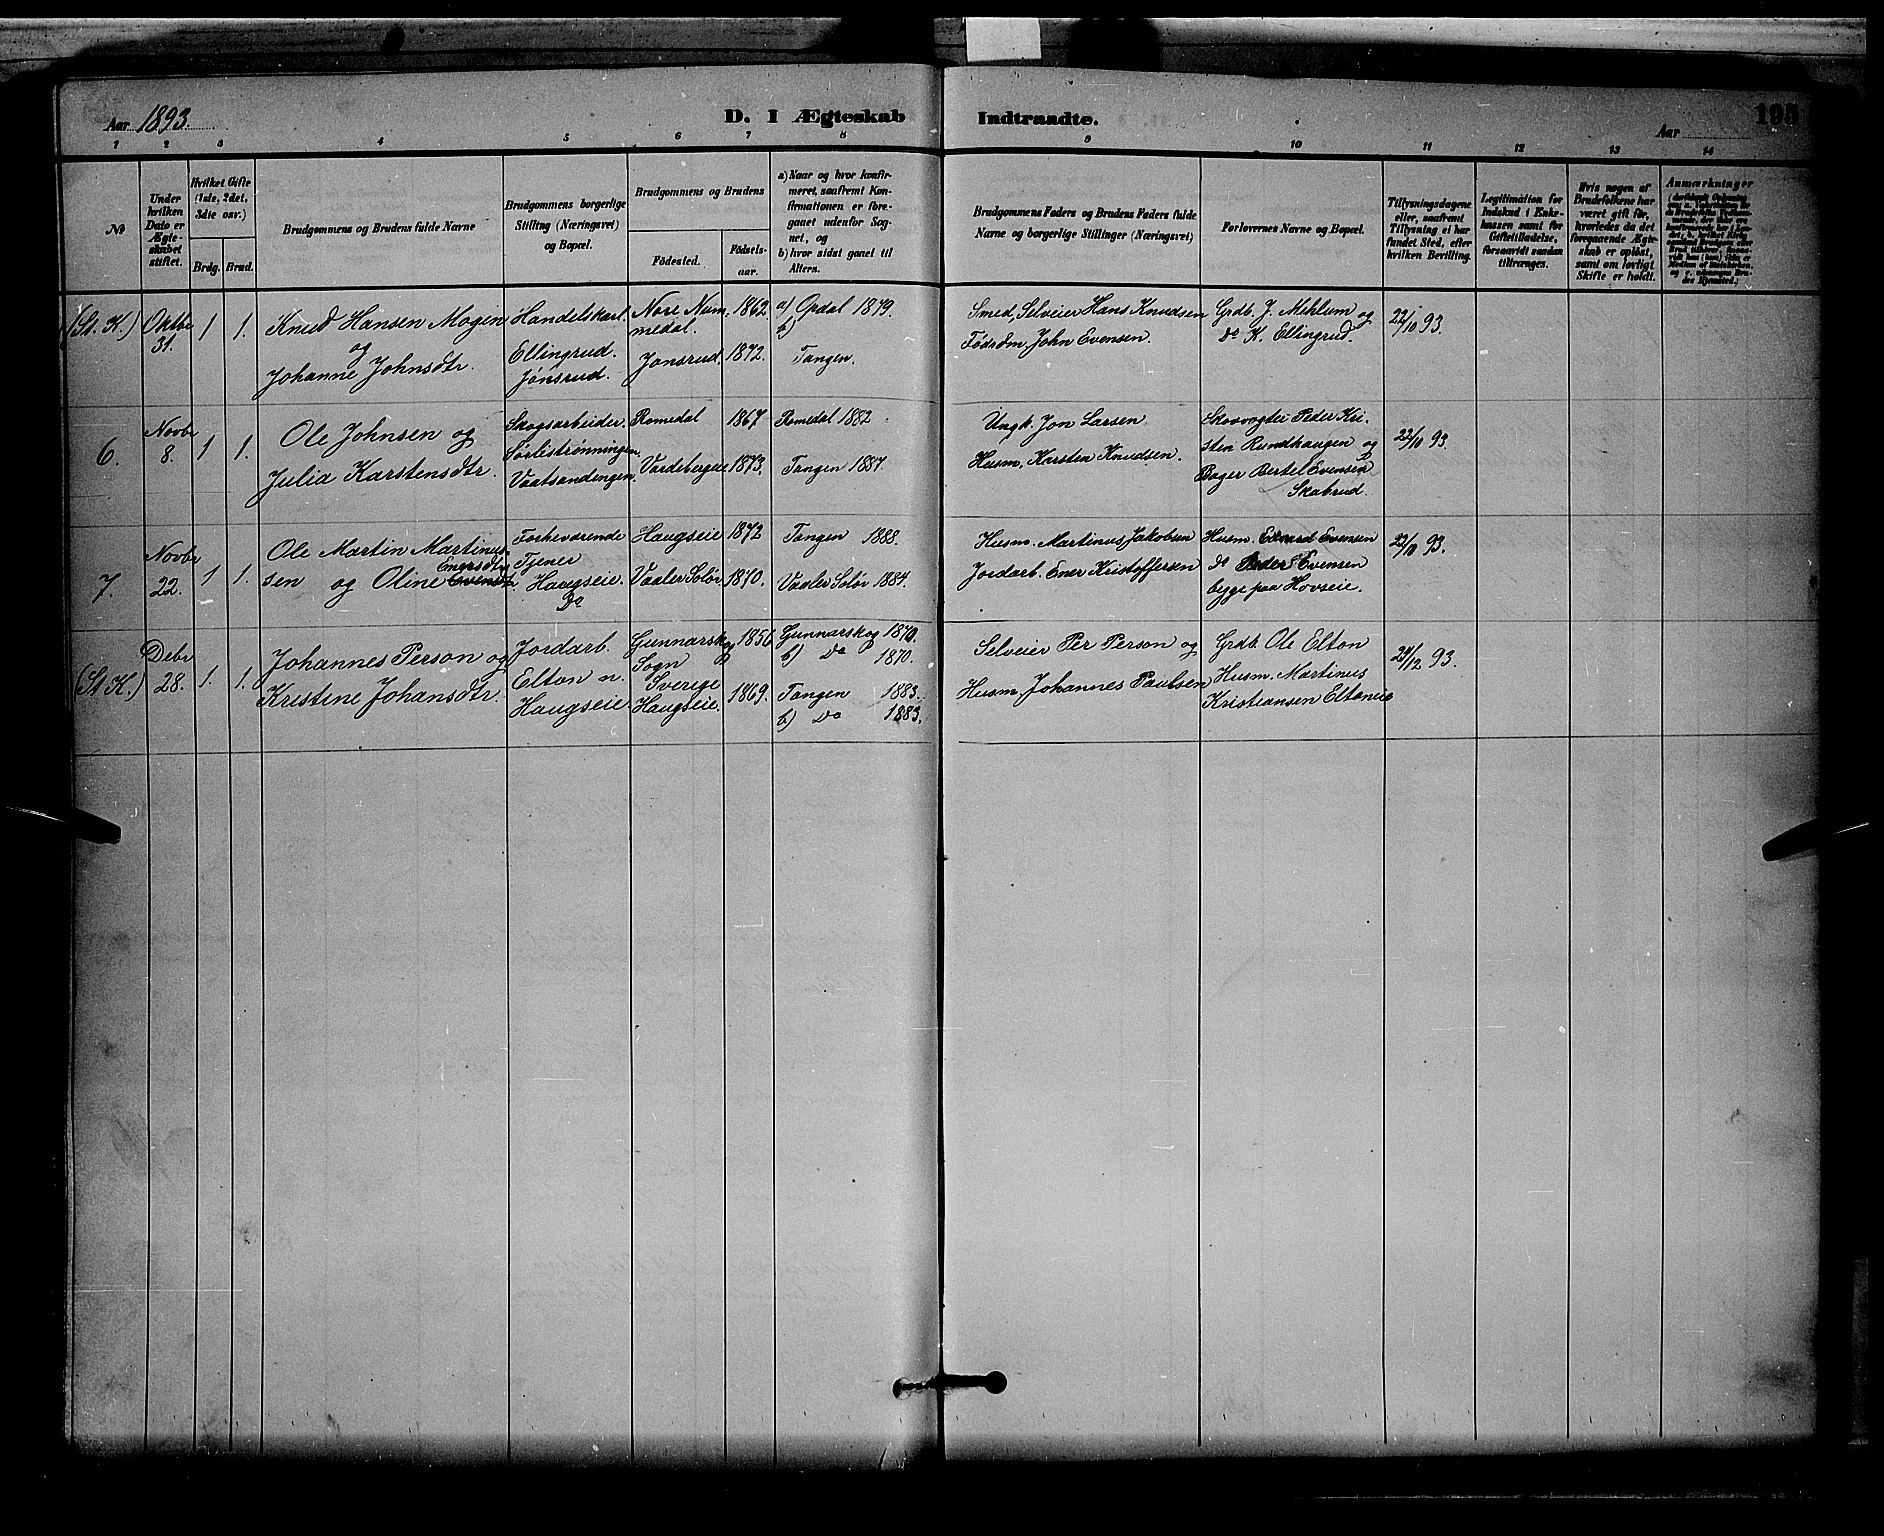 Aar 1893.
D. I Ægteskab Indtraadte.
195
Aar
1 2 3 4 5 6 7 8 9 10 11 12 13 14
No
Under hvilken Dato er Ægteskabet stiftet.
Hvilket Gifte (1ste, 2det, 3die osv.)
Brdg. Brud.
Brudgommens og Brudens fulde Navne
Brudgommens borgerlige Stilling (Næringsvei) og Bopæl.
Brudgommens og Brudens
Födested.
Födselsaar.
a) Naar og hvor konfirmeret, saafremt Konfirmationen er foregaaet udenfor Sognet, og
b) hvor sidst gaaet til Alters.
Brudgommens Faders og Brudens Faders fulde Navne og borgerlige Stillinger (Næringsvei)
Forlovernes Navne og Bopæl.
Tillysningsdagene eller, saafremt Tillysning ei har fundet Sted, efter hvilken Bevilling.
Legitimation for Indskud i Enkekassen samt for Giftetilladelse, forsaavidt saadan tiltrænges.
Hvis nogen af Brudefolkene har været gift för, hvorledes da det foregaaende Ægteskab er oplöst, samt om lovligt Skifte er holdt.
Anmærkninger
(St. K.) Oktbr 31. 1 1. Knud Hansen Mogen Handelskarl Nore Num 1862 a) Opdal 1879. Smed, Selveier Hans Knudsen Grdb. J. Mehlum og 22/10 93.
og Ellingrud. medal b) Födrdm, John Evensen. Do K. Ellingrud.
Johanne Johnsdtr. Jönsrud. Jönsrud 1872. Tangen.
6. Novbr 8. 1 1. Ole Johnsen og Skogsarbeider Romedal 1867 Romedal 1882. Ungk. Jon Larsen Skovvogter Peder Kri- 22/10 93.
Sørlistrønningen sten Rundhaugen og
Julia Karstensdtr. Vaatsandengen. Vardebergeie 1873. Tangen 1887. Husm. Karsten Knudsen. Bager Bertel Evensen
Skabrud.
7. Novbr 22. 1 1. Ole Martin Martinus- Forheværende Haugseie 1872 Tangen 1888. Husm. Martinus Jakobsen Husm. Edvard Evensen 22/10 93.
Engersdtr Tjener
sen og Oline Evensdtr. Haugseie. Vaaler Solør 1870. Vaaler Solør 1884. Jordarb. Ener Kristoffersen Do Peder Evensen
Do begge paa Hovseie.
(St K.) Debr 28. 1. 1. Johannes Person og Jordarb. Gunnarskog 1856 Gunnarskog 1870. Selveier Per Person og Grdb. Ole Elton 24/12 93.
Elton n. Sogn b) Do 1870. Husm. Martinus
Sverige
Kristine Johansdtr. Haugseie. Haugseie. 1869. Tangen 1883. Husm. Johannes Paulsen, Kristiansen Eltoneie
b) Do 1883.